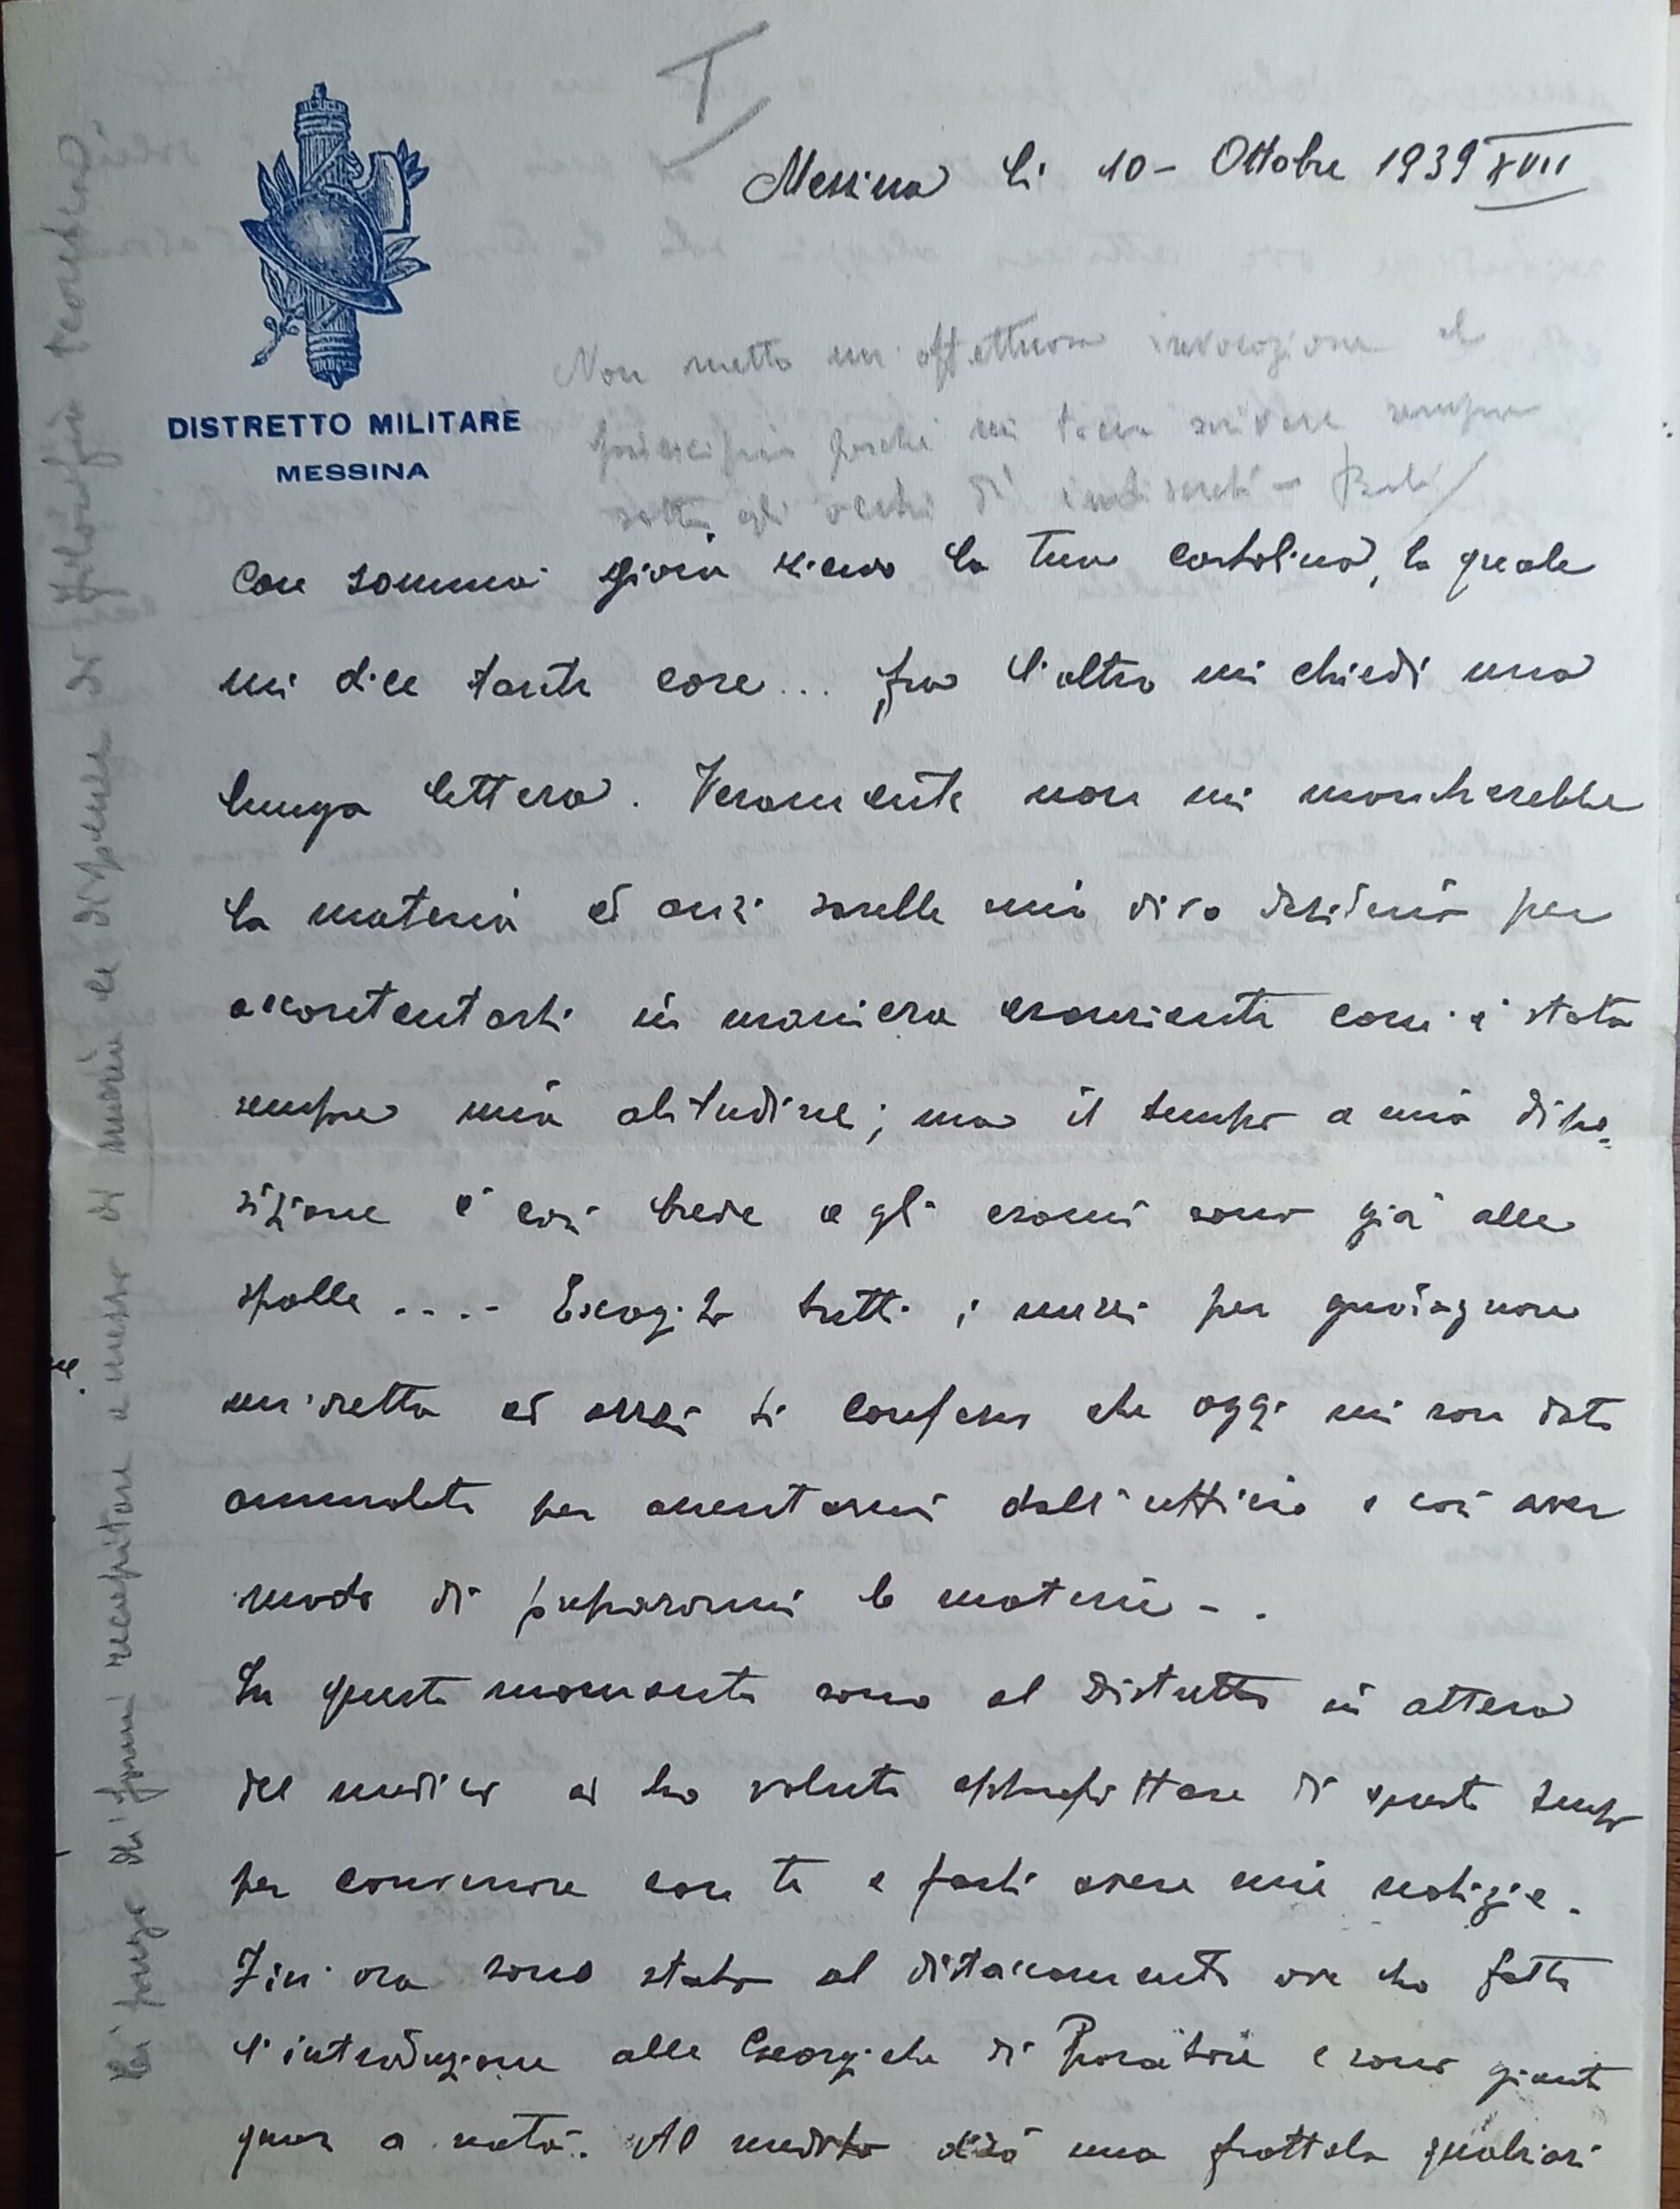 I
Messina li 10 - Ottobre 1939 XVII
DISTRETTO MILITARE
MESSINA
Non metto un'affettuosa invocazione al
principio perché mi tocca scrivere sempre
sotto gli occhi di indiscreti - Baci
Con somma gioia ricevo la tua cartolina, la quale
mi dice tante cose... fra l'altro mi chiedi una
lunga lettera. Veramente non mi mancherebbe
la materia ed anzi sarebbe mio vivo desiderio per
accontentarti in maniera esauriente com'è stata
sempre mia abitudine; ma il tempo a mia dispo-
sizione è così breve e gli esami sono già alle
spalle .... Escogito tutti i mezzi per guadagnare
un'oretta ed anzi ti confesso che oggi mi son dato
ammalato per assentarmi dall'ufficio e così aver
modo di prepararmi le materie - .
In questo momento sono al Distretto in attesa
del medico ed ho voluto approfittare di questo tempo
per conversare con te e farti avere mie notizie.
Fin'ora sono stato al distaccamento ove ho fatto
l'introduzione alle Georgiche di e sono giunto
quasi a metà. Al medico dirò una frottola qualsiasi
Li pongo dei fogni recapitare a mezzo di la dispensa di filosofia teoretica